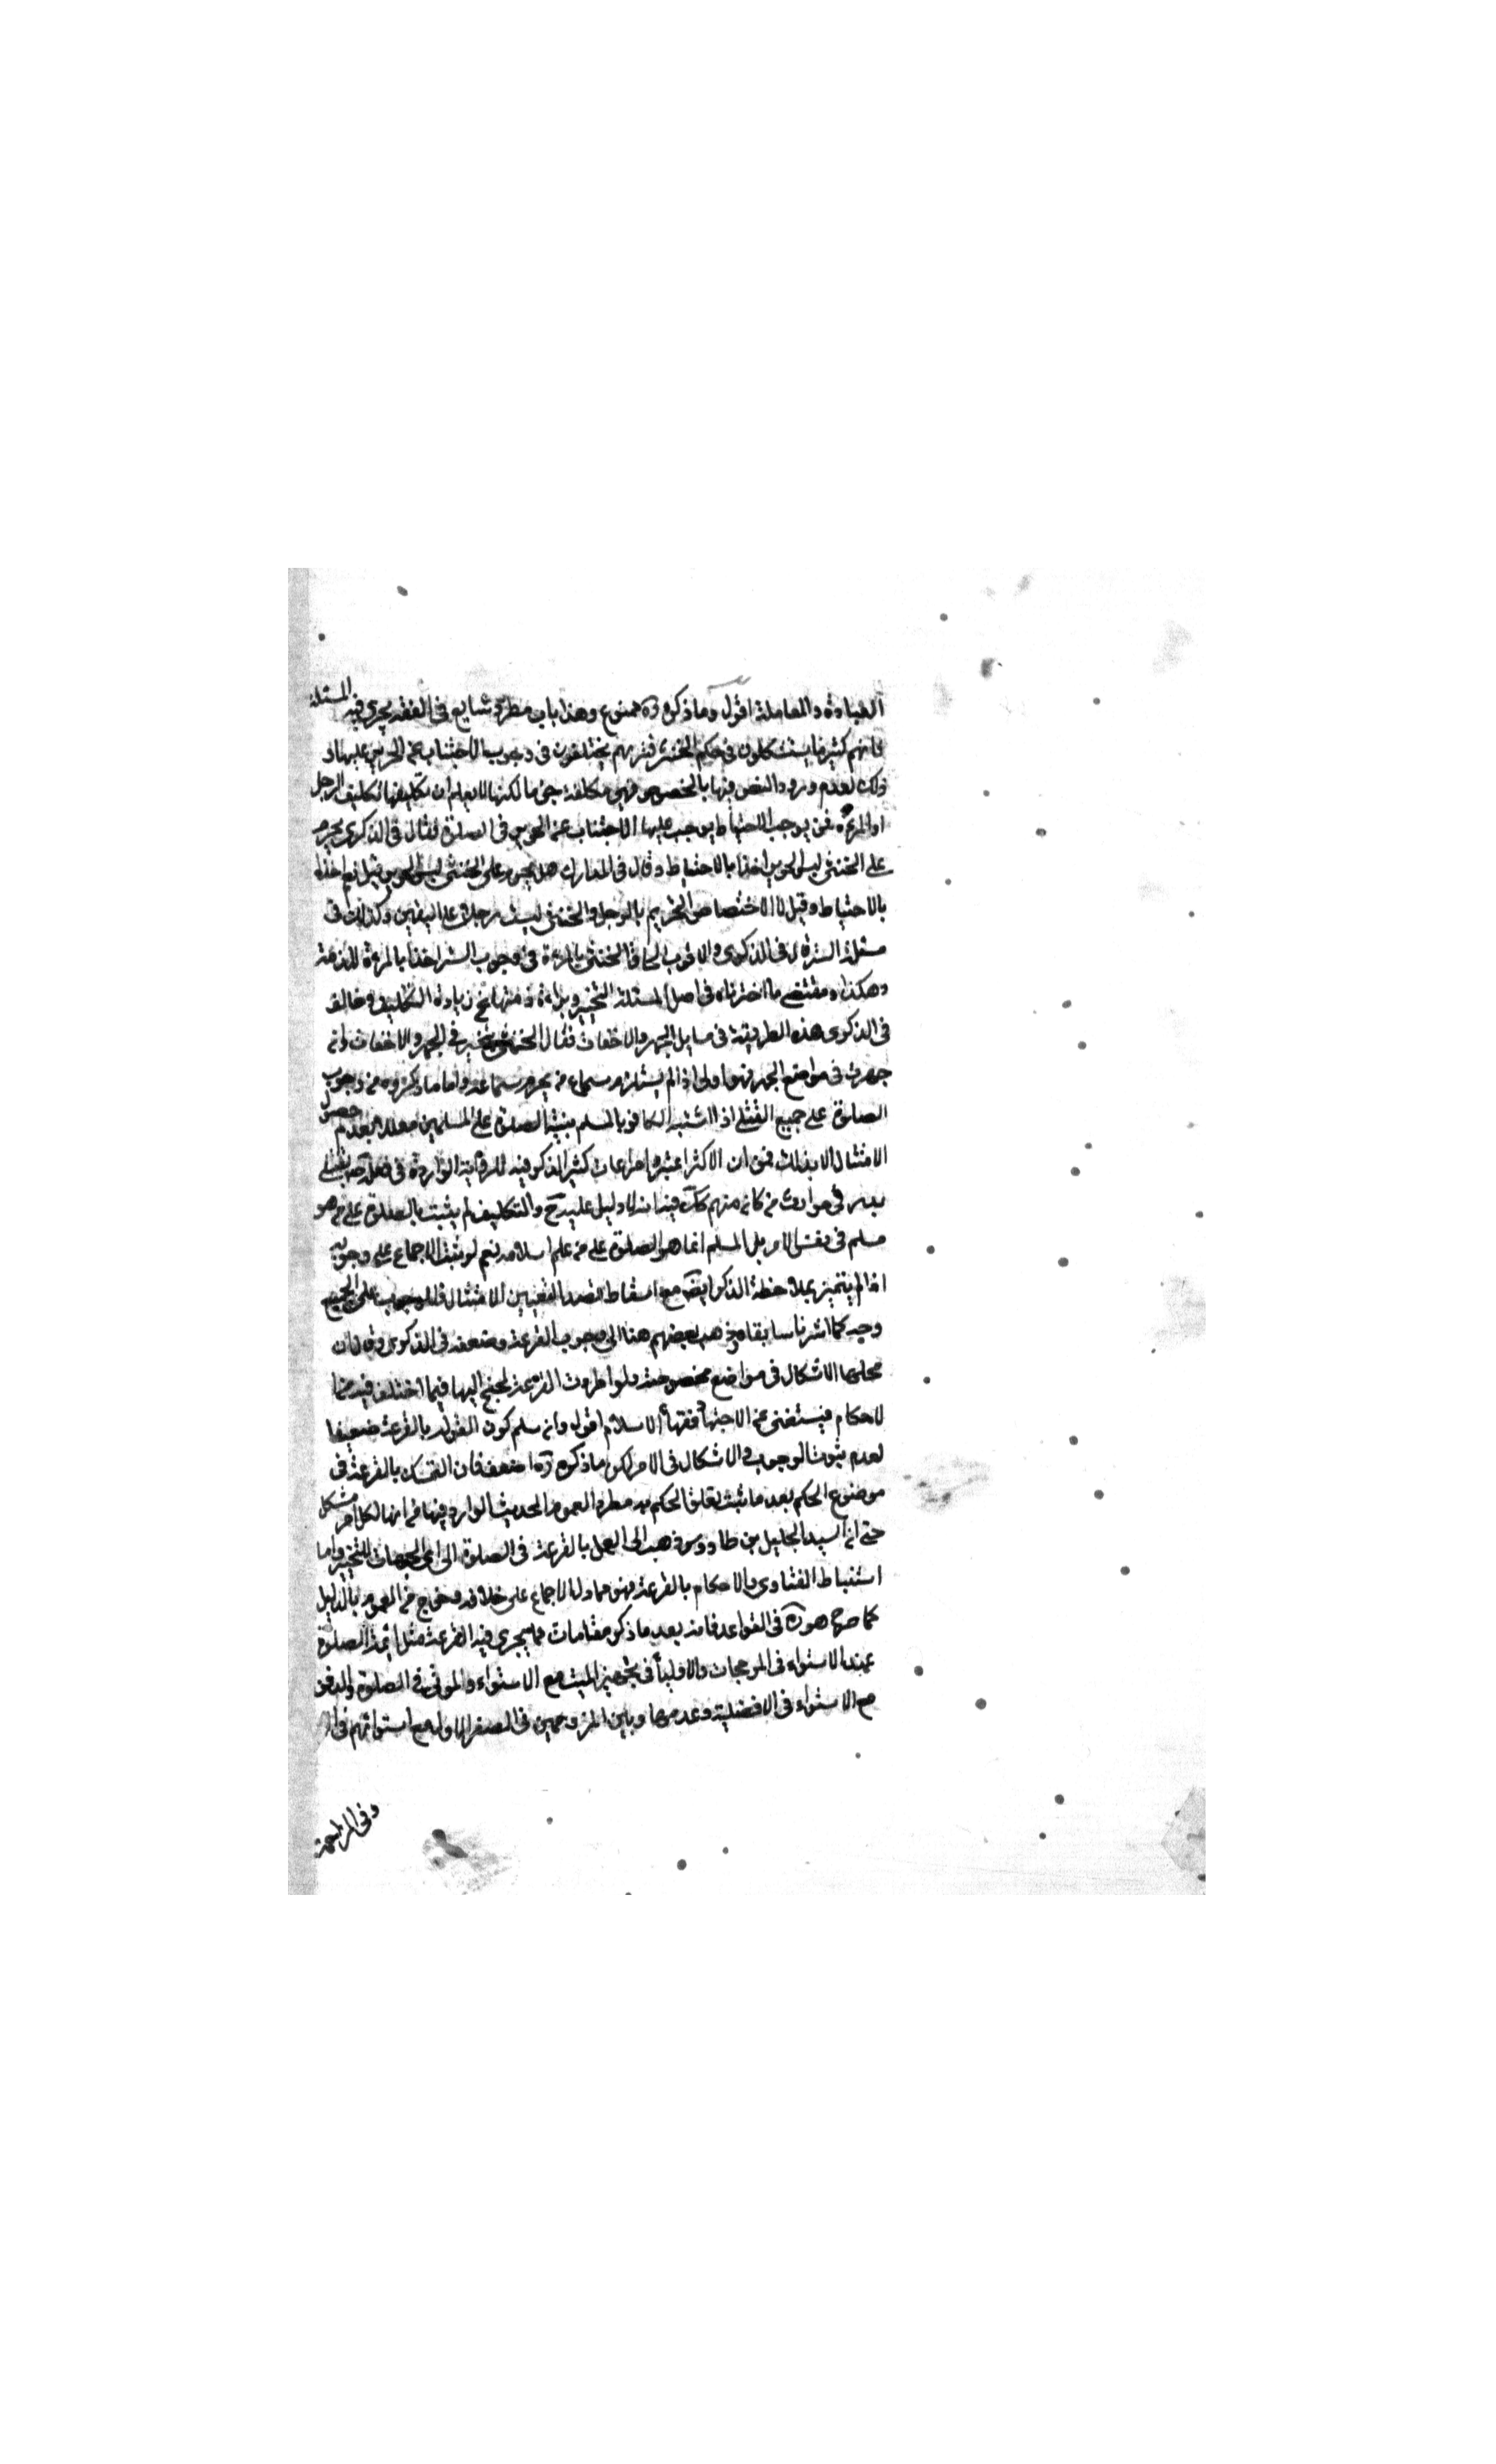 العبادة والمعاملة اقول وما ذكره ره ممنوع وهذا باب مطرد شايع فى الفقه يجرى فيه المسئلة
فانهم كثيرا ما يستشكلون فى حكم الخنثى فتريهم يختلفون فى وجوب الاجتناب عن الحرير عليها و
ذلك لعدم ورود النص فيها بالخصوص فهى مكلفة جزما لكنها لا يعلم ان تكليفها تكليف الرجل
او المرءة فمن يوجب الاحتياط يوجب عليها الاجتناب عن الحرير فى الصلوة فقال فى الذكرى يحرم
على الخنثى لبس الحرير اخذا بالاحتياط وقال فى المدارك هل يحرم على الخنثى لبس الحرير قيل نعم اخذا
بالاحتياط وقيل لا لاختصاص التحريم بالرجل والخنثى ليست رجلا على اليقين وكذلك فى
مسئلة الستر قال فى الذكرى والاقرب الحاق الخنثى بالمرءة فى وجوب الستر اخذا بالمبرء للذمة
وهكذا ومقتضى ما اخترناه فى اصل المسئلة التخيير وبراءة ذمتها عن زيادة التكليف وخالف
فى الذكرى هذه الطريقة فى مسايل الجهر والاخفات فقال الخنثى يتخير فى الجهر والاخفات وان
جهرت فى مواضع الجهر فهو اولى اذا لم يستلزم سماع من يحرم سماعه واما ما ذكروه من وجوب
الصلوة على جميع القتلى اذا اشتبه الكافر بالمسلم بنية الصلوة على المسلمين معللا بعدم حصول
الامتثال الا بذلك فمع ان الاكثر اعتبروا مراعات كثير الذكر فيه للرواية الواردة فى قتلى
بدر فى مواراة من كان منهم كك فيه انه لا دليل عليه ح والتكليف لم يثبت بالصلوة على من هو
مسلم فى نفس الامر بل المسلم انما هو الصلوة على من علم اسلامه نعم لو ثبت الاجماع على وجوبه
اذا لم يتميز بملاحظة الذكر ايض مع اسقاط قصد التعيين للامتثال فللوجوب على الجميع
وجه كما اشرنا سابقا وذهب بعضهم هنا الى وجوب القرعة وضعفه فى الذكرى وقال ان
محلها الاشكال فى مواضع مخصوصة ولو اطردت القرعة لجنح اليها فيما اختلف فيه من
الاحكام فيستغنى عن الاجتهاد فقهاء الاسلام اقول وان سلم كون القول بالقرعة ضعيفا
لعدم ثبوت الوجوب والاشكال فى الامر لكن ما ذكره ره اضعف فان التمسك بالقرعة فى
موضوع الحكم بعد ما ثبت تعلق الحكم به مطرد لعموم الحديث الوارد فيها من انها لكل امر مشكل
حتى ان السيد الجليل بن طاووس ذهب الى العمل بالقرعة فى الصلوة الى اى الجهات للتخيير واما
استنباط الفتاوى والاحكام بالقرعة فهو مما دل الاجماع على خلافه وخرج من العموم بالدليل
كما صرح هو ره فى القواعد فانه بعد ما ذكر مقامات مما يجرى فيه القرعة مثل ائمة الصلوة
عند الاستواء فى المرجحات والاولياء فى تجهيز الميت مع الاستواء والموتى فى الصلوة والدفن
مع الاستواء فى الافضلية وعدمها وبين المزدحمين فى الصف الاول مع استوائهم فى
وفى المزاحمة